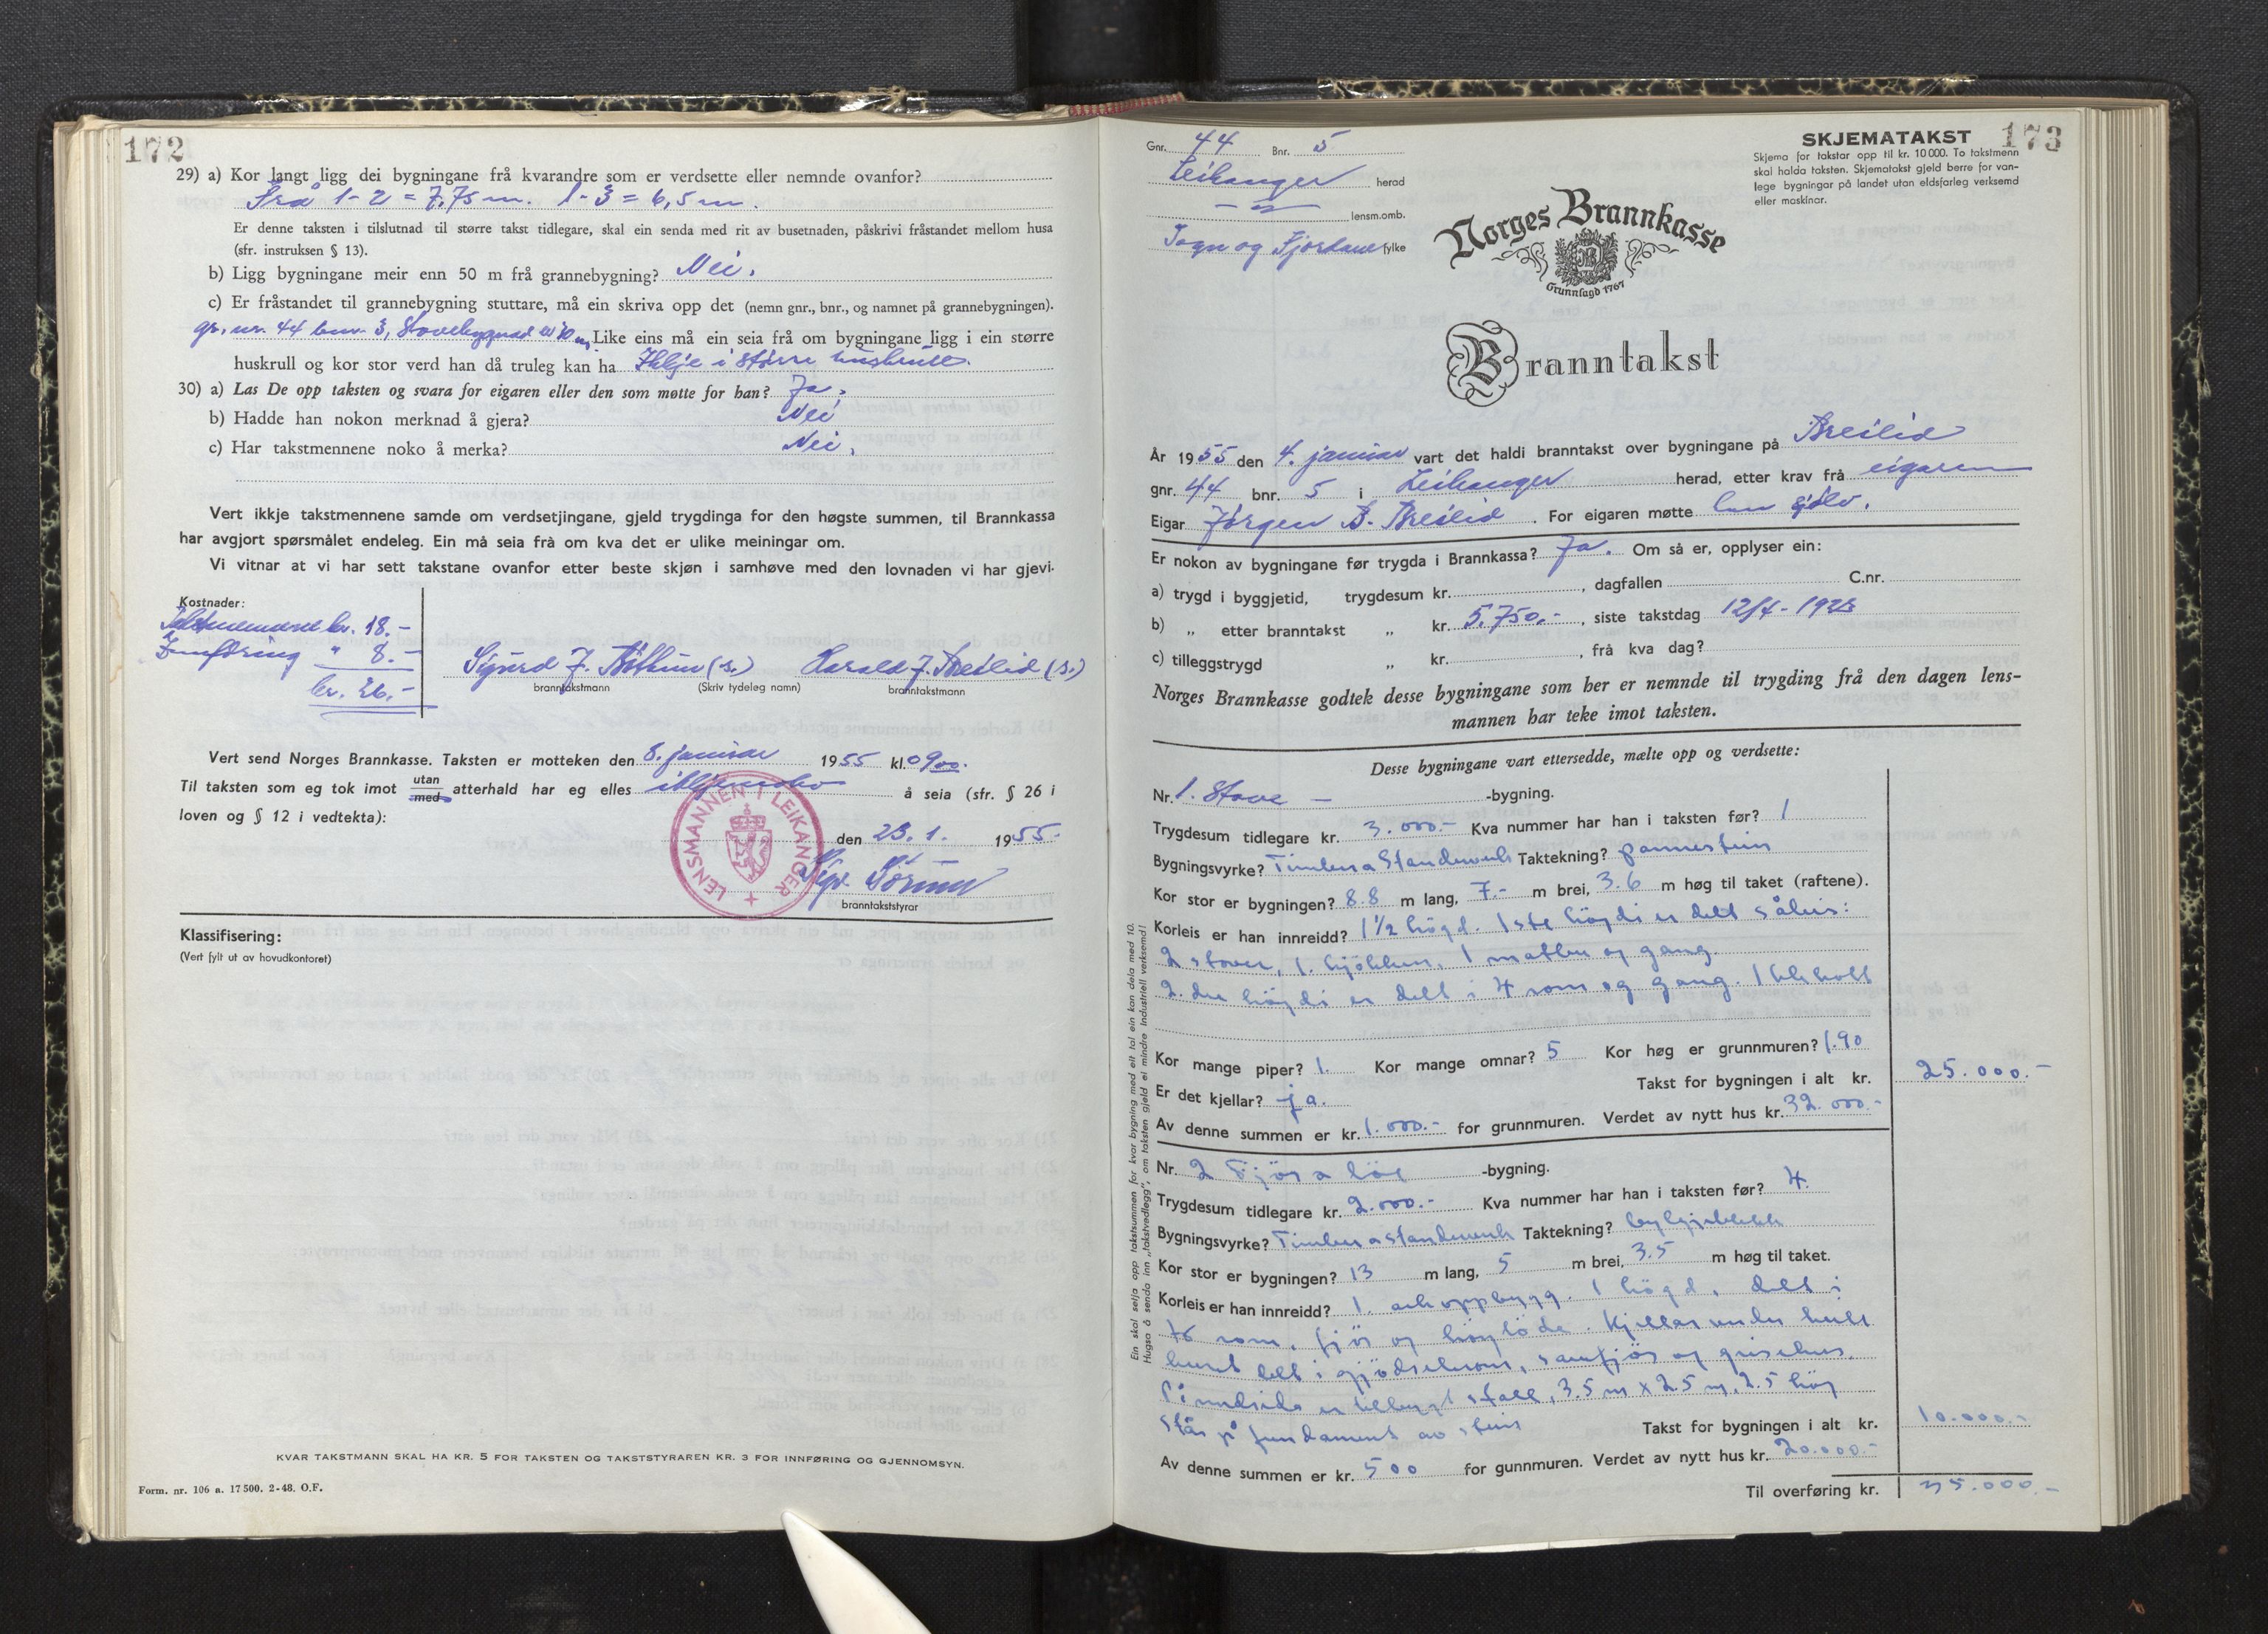 172
29) a) Kor langt ligg dei bygningane frå kvarandre som er verdsette eller nemnde ovanfor?
Frå 1-2 = 7,75 m. 1-3 = 6,5 m.
Er denne taksten i tilslutnad til større takst tidlegare, skal ein senda med rit av busetnaden, påskrivi fråstandet mellom husa
(sfr. instruksen § 13).
b) Ligg bygningane meir enn 50 m frå grannebygning? Nei.
c) Er fråstandet til grannebygning stuttare, må ein skriva opp det (nemn gnr., bnr., og namnet på grannebygningen).
gr. nr. 44 bnr. 3, Stovebygnad Like eins må ein seia frå om bygningane ligg i ein større
huskrull og kor stor verd han då truleg kan ha Ikkje i større huskrull.
30) a) Las De opp taksten og svara for eigaren eller den som møtte for han? Ja.
b) Hadde han nokon merknad å gjera? Nei
c) Har takstmennene noko å merka? Nei.
Vert ikkje takstmennene samde om verdsetjingane, gjeld trygdinga for den høgste summen, til Brannkassa
har avgjort spørsmålet endeleg. Ein må seia frå om kva det er ulike meiningar om.
Vi vitnar at vi har sett takstane ovanfor etter beste skjøn i samhøve med den lovnaden vi har gjevi.
Kostnader:
Takstmennene kr. 18.-
Innføring " 8.-
kr. 26.-
Sigurd J. Bøthun (s.) Harald J. Breilid (s.)
branntakstmann (Skriv tydeleg namn) branntakstmann
Vert send Norges Brannkasse. Taksten er motteken den 8. januar 1955 kl. 0900.
Til taksten som eg tok imot utan med atterhald har eg elles ikkje noko å seia (sfr. § 26 i
loven og § 12 i vedtekta):
LENSMANNEN I LEIKANGER
den 23. 1. 1955.
branntakststyrar
Klassifisering:
(Vert fylt ut av hovudkontoret)
KVAR TAKSTMANN SKAL HA KR. 5 FOR TAKSTEN OG TAKSTSTYRAREN KR. 3 FOR INNFØRING OG GJENNOMSYN.
Form. nr. 106 a. 17 500. 2-48. O.F.
173
Gnr. 44 Bnr. 5
Leikanger herad
lensm.omb.
Sogn og Fjordane fylke
SKJEMATAKST
Skjema for takstar opp til kr. 10 000. To takstmenn
skal halda taksten. Skjematakst gjeld berre for van-
lege bygningar på landet utan eldsfarleg verksemd
eller maskinar.
Norges Brannkasse
Grunnlagd 1767
Branntakst
År 1955 den 4. januar vart det haldi branntakst over bygningane på Breilid
gnr. 44 bnr. 5 i Leikanger herad, etter krav frå eigaren
Eigar Jørgen B. Breilid. For eigaren møtte han sjølv.
Er nokon av bygningane før trygda i Brannkassa? Ja. Om så er, opplyser ein:
a) trygd i byggjetid, trygdesum kr. , dagfallen C.nr.
b) „ etter branntakst „ kr. 5.750.- , siste takstdag 12/4 -
c) tilleggstrygd „ kr. , frå kva dag?
Norges Brannkasse godtek desse bygningane som her er nemnde til trygding frå den dagen lens-
mannen har teke imot taksten.
Desse bygningane vart ettersedde, mælte opp og verdsette:
Nr. 1. Stove - -bygning.
Trygdesum tidlegare kr. 3.000.- Kva nummer har han i taksten før? 1
Bygningsvyrke? Timbur a Standverk Taktekning? pannestein
Kor stor er bygningen? 8.8 m lang, 7.- m brei, 3.6 m høg til taket (raftene).
Korleis er han innreidd? 1 1/2 høgd. 1ste høgdi er delt såleis:
2 stover, 1. kjøkken, 1 matbu og gang.
2. dre høgdi er delt i 4 rom og gang. 1
Kor mange piper? 1. Kor mange omnar? 5 Kor høg er grunnmuren? 1.90
Er det kjellar? ja. Takst for bygningen i alt kr. 25.000.-
Av denne summen er kr. 1.000.- for grunnmuren. Verdet av nytt hus kr. 32.000.-
Nr. 2 Fjøs a løe -bygning.
Trygdesum tidlegare kr. 2.000.- Kva nummer har han i taksten før? 4.
Bygningsvyrke? Timbur a standverk Taktekning? bylgjeblekk
Kor stor er bygningen? 13 m lang, 5 m brei, 3.5 m høg til taket.
Korleis er han innreidd? 1. ark oppbygg. 1 høgd, delt i
rom, fjøs og høyløde. Kjellar under heile
huset delt i gjødselrom, sauefjøs og grisehus.
På nedsida er tilbygt stall, 3.5 m x 2.5 m, 2.5 høg
Står på fundament av stein Takst for bygningen i alt kr. 10.000.-
Av denne summen er kr. 500 for gunnmuren. Verdet av nytt hus kr. 20.000.-
Til overføring kr. 35.000.-
Ein skal setja opp takstsummen for kvar bygning med eit tal ein kan dela med 10.
Hugsa å senda inn „takstvedlegg", om taksten gjeld ei mindre industriell verksemd!